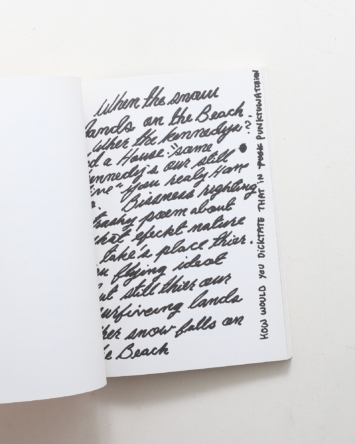 When the snow
lands on the Beach
Wher the kennedys?
d a House "some
ennedy's our still
ive" You realy Ham
Bissness righting
trashy poem about
that efeckt nature
take's place thier.
u flying ideot
ut still thier our
urfiveing lands
her snow falls on
he Beach
HOW WOULD YOU DICKTATE THAT IN PUNKTUWATSION